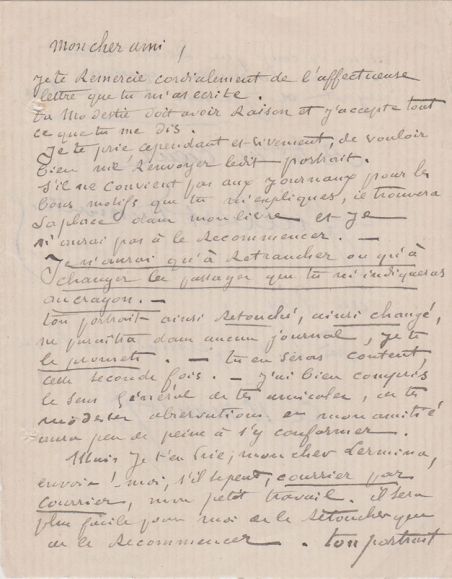 Mon cher ami,
Je te Remercie cordialement de l'affectueuse
lettre que tu m'as ecrite.
ta Modestie doit avoir Raison et j'accepte tout
ce que tu me dis.
Je te prie cependant et vivement, de vouloir
bien me Renvoyer ledit portrait.
S'il ne convient pas aux journaux pour les
bons motifs que tu m'expliques, il trouvera
Sa place dans mon livre et je
n'aurai pas à le Recommencer. —
Je n'aurai qu'à Retrancher ou qu'à
changer les passages que tu m'indiqueras
au crayon. —
ton portrait ainsi Retouché, ainsi changé,
ne paraîtra dans aucun journal, je te
le promets. — tu en seras content,
cette seconde fois. — J'ai bien compris
le sens Général de tes amicales, de tes
modestes observations et mon amitié
aura peu de peine à s'y conformer.
Mais je t'en prie, mon cher Lermina,
envoie-moi, s'il se peut, courrier par
courrier, mon petit travail. il sera
plus facile pour moi de le Retoucher que
de le Recommencer. ton portrait